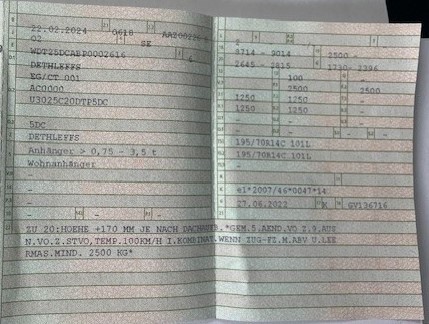 22.02.2024 0618
02 SE
WDT25DCABP0002616 4
DETHLEFFS
EG/CT 001
AC0000
U3025C20DTP5DC
5DC
DETHLEFFS
Anhänger > 0,75 - 3,5 t
Wohnanhänger
-
-
- - -
8714 - 9014 2500
2645 - 2815 1730- 2396
- 100 -
- 2500 - 2500
1250 1250 -
1250 1250 -
- - -
195/70R14C 101L
195/70R14C 101L
-
-
e1*2007/46*0047*14
27.06.2022 K GV136716
-
ZU 20:HOEHE +170 MM JE NACH *GEM.5.AEND.VO Z.9.AUS
N.VO.Z.STVO,TEMP.100KM/H I.KOMBINAT.WENN ZUG-FZ.M.ABV U.LEE
RMAS.MIND. 2500 KG*